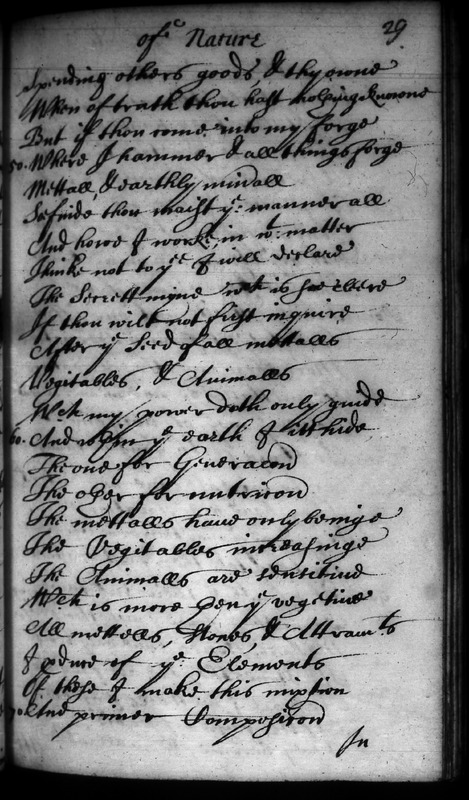 of yͤ Nature
29
Spending others goods & thy owne
When of truth thou hast nothing knowne
But if thou come into my forge
50. Where I hammer & all things forge
Mettall, & earthly minall
Se inside thou maist yͤ manner all
And howe I worke, in wͭ matter
Thinke not to yͤ I will declare
The Secrett mine wch is soe
If thou wilt not first inquire
After yͤ Seed of all mettalls
Vegitables, & Animalls
Wch my power doth only guide
60. And in yͤ earth I itt hide
The one for Generacon
The oyer for nutricon
The mettalls have only beinge
The Vegitables increasinge
The Animalls are sensitiue
Wch is more yen yͤ vegetiue
All mettells, Stones, & Attramͭs
I pduce of yͤ Elements
Of these I make this mixtion
70. And primer Composicon
In